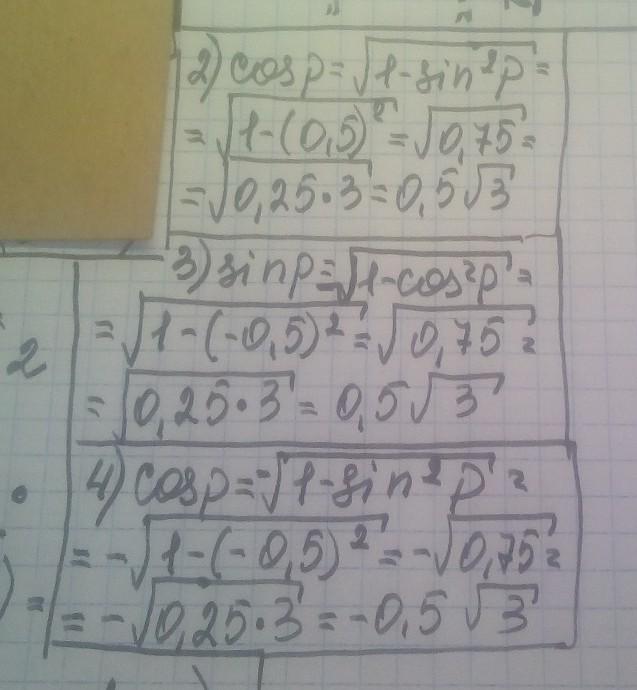 2) cosp=√1-sin²p=
=√1-(0,5)²=√0,75=
=√0,25·3=0,5√3
3) sinp=√1-cos²p=
=√1-(-0,5)²=√0,75=
=√0,25·3=0,5√3
4) cosp=-√1-sin²p=
=-√1-(-0,5)²=-√0,75=
=-√0,25·3=-0,5√3
2
•
) =